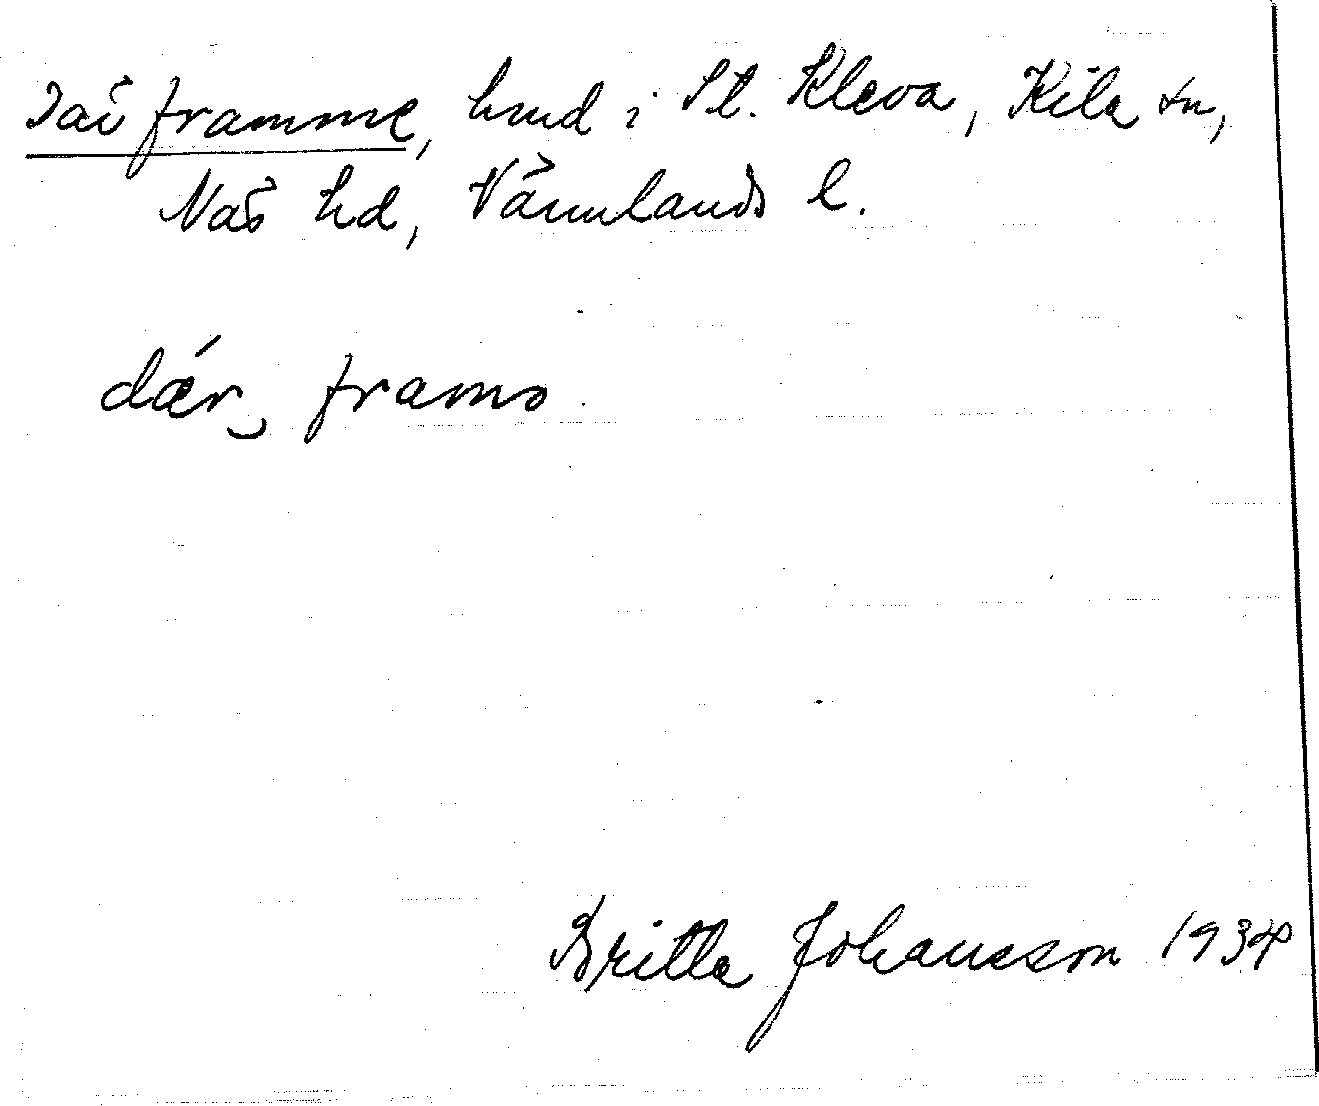 Där framme, hmd i St. Kleva, Kila sn,
Näs hd, Värmlands l.
dǽr‿ framə
Britta Johansson 1934